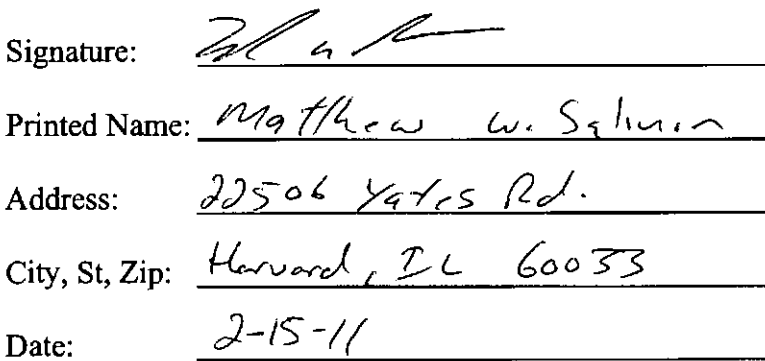 Signature:
Printed Name: Matthew W. Salmon
Address: 22506 Yates Rd.
City, St, Zip: Harvard, IL 60033
Date: 2-15-11